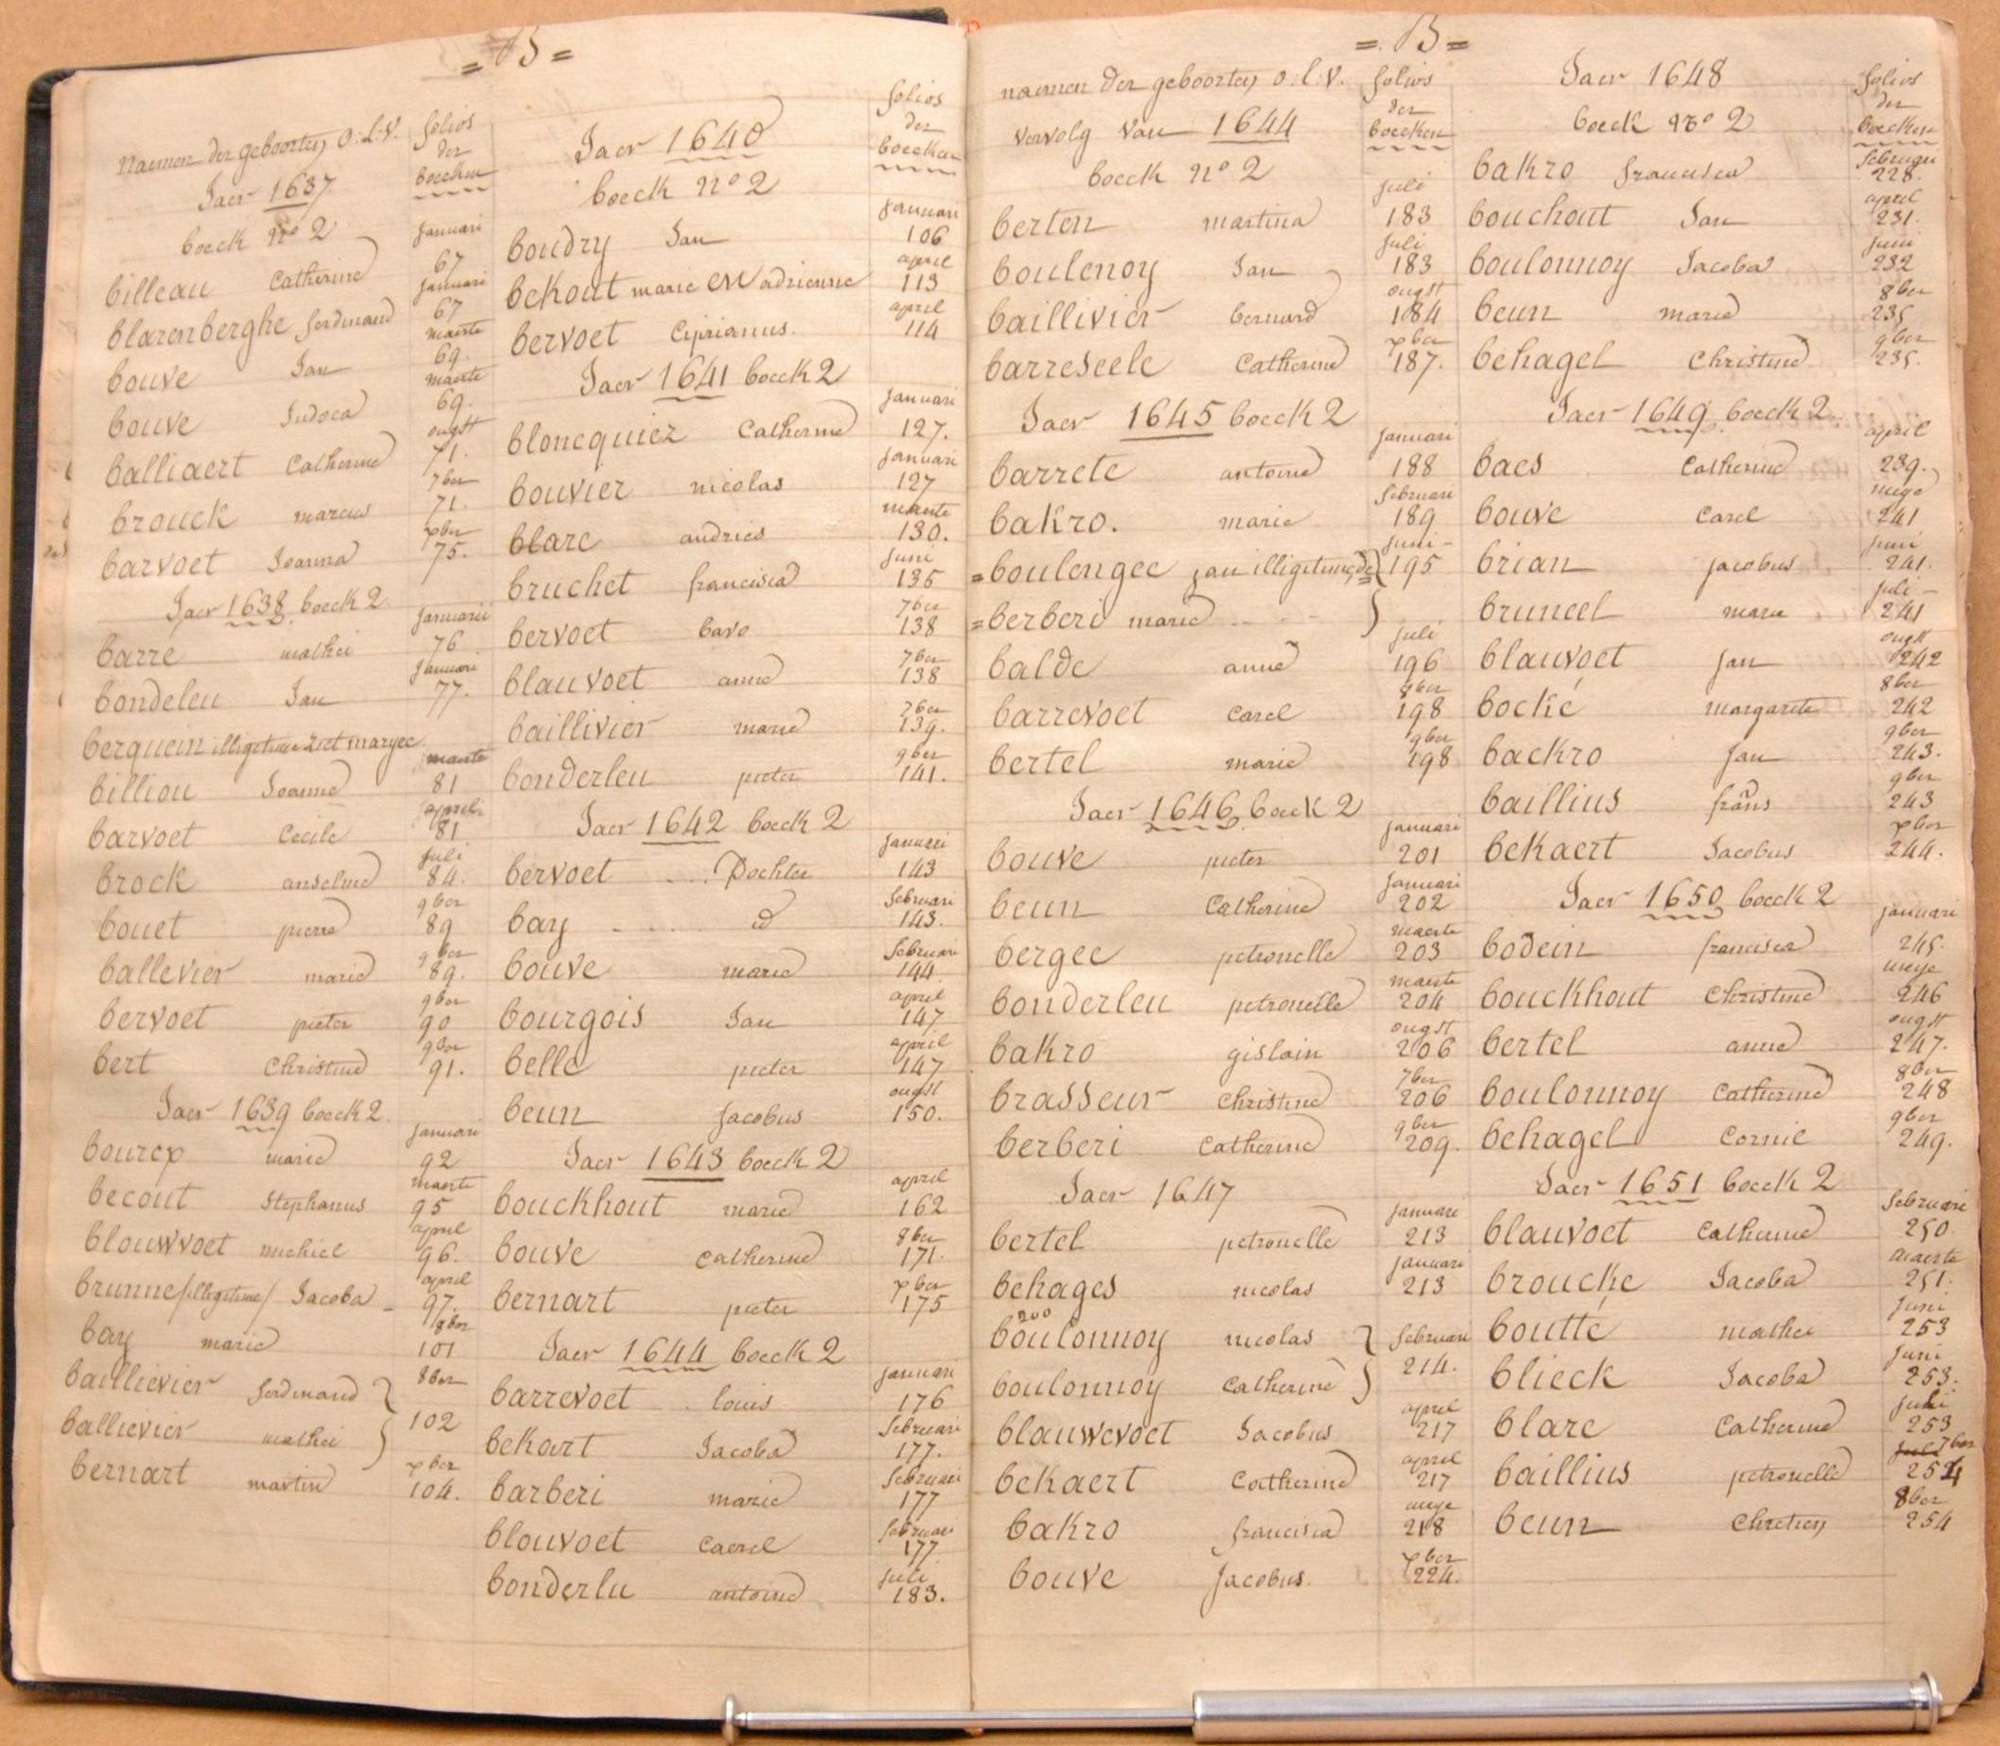 = B =
Naemen der geboorten O.L.V. folios der boecken
Jaer 1637
boeck No 2
januari
billeau Catherine 67
januari
blarenberghe ferdinand 67
maerte
bouve Jan 69.
maerte
bouve Judoca 69.
ougst
balliaert Catherine 71.
7ber
brouck marcus 71.
xber
barvoet Joanna 75.
Jaer 1638 boeck 2
januarii
barre mathei 76
januari
bondeleu Jan 77.
berquein illigetime met maryee
maerte
billiou Joanne 81
april
barvoet Cecile 81
juli
brock anselme 84.
9ber
bouet pierre 89
9ber
ballevier marie 89.
9ber
bervoet pieter 90
9ber
bert Christine 91.
Jaer 1639 boeck 2.
januari
bourex marie 92
maerte
becout Stephanus 95
april
blouwvoet michiel 96.
april
brunne /illigetime/ Jacoba - 97.
8ber
bay marie 101
8ber
baillievier ferdinand }
ballievier mathei } 102
xber
bernart martin 104.
Jaer 1640
boeck No 2
folios der boecken
januari
boudry Jan 106
april
bekout marie en adrienne 113
april
bervoet Ciprianus. 114
Jaer 1641 boeck 2
januari
bloncquiez Catherine 127.
januari
bouvier nicolas 127
maerte
blare andries 130.
juni
bruchet francisca 135
7ber
bervoet bavo 138
7ber
blauvoet anne 138
7ber
baillivier marie 139.
9ber
bonderleu pieter 141.
Jaer 1642 boeck 2
januari
bervoet .... Dochter 143
februari
bay .... id 143.
februari
bouve marie 144
april
bourgois Jan 147
april
belle pieter 147
ougst
beun jacobus 150.
Jaer 1643 boeck 2
april
bouckhout marie 162
8ber
bouve Catherine 171.
xber
bernart pieter 175
Jaer 1644 boeck 2
januari
barrevoet louis 176
februari
bekart Jacoba 177.
februari
barberi marie 177
februari
blouvoet Caerel 177
juli
bonderlu antoine 183.
=. B =
naemen der geboorten o.l.v. folios der boecken
vervolg van 1644
boeck No 2
juli
berten martina 183
juli
boulenoy Jan 183
ougst
baillivier bernard 184
xber
barreseele Catherine 187.
Jaer 1645 boeck 2
januari
barrete antoine 188
februari
bakro. marie 189
juni -
=boulengee jan illigetime de } 195
=berberi marie - - - }
juli
balde anne 196
8ber
barrevoet Carel 198
9ber
bertel marie 198
Jaer 1646 boeck 2
januari
bouve pieter 201
januari
beun Catherine 202
maerte
bergee petronelle 203
maerte
bonderleu petronelle 204
ougst
bakro gislain 206
7ber
brasseur Christine 206
9ber
berberi Catherine 209.
Jaer 1647
januari
bertel petronelle 213
januari
behages nicolas 213
200
boulonnoy nicolas } februari
boulonnoy Catherine } 214.
april
blauwevoet Jacobus 217
april
bekaert Catherine 217
meye
bakro francisca 218
xber
bouve Jacobus. 224.
Jaer 1648
boeck No 2
folios der boecken
februari
bakro francisca 228.
april
bouchout Jan 231.
juni
boulonnoy Jacoba 232
8ber
beun marie 235
9ber
behagel Christine 235.
Jaer 1649 boeck 2.
april
baes Catherine 239.
meye
bouve Carel 241
juni
brian jacobus 241.
juli -
bruneel marie 241
ougst
blauvoet jan 242
8ber
bocké margarete 242
9ber
backro jan 243.
9ber
baillius frans 243
xber
bekaert Jacobus 244.
Jaer 1650 boeck 2
januari
bodein francisca 245.
meye
bouckhout Christine 246
ougst
bertel anne 247.
8ber
boulonnoy Catherine 248
9ber
behagel Cornie 249.
Jaer 1651 boeck 2
februari
blauvoet Catherine 250.
maerte
broucke Jacoba 251.
juni
boutté mathei 253
juni
blieck Jacoba 253.
juli
blare Catherine 253
juli 7ber
baillius petronelle 254
8ber
beun Chretien 254